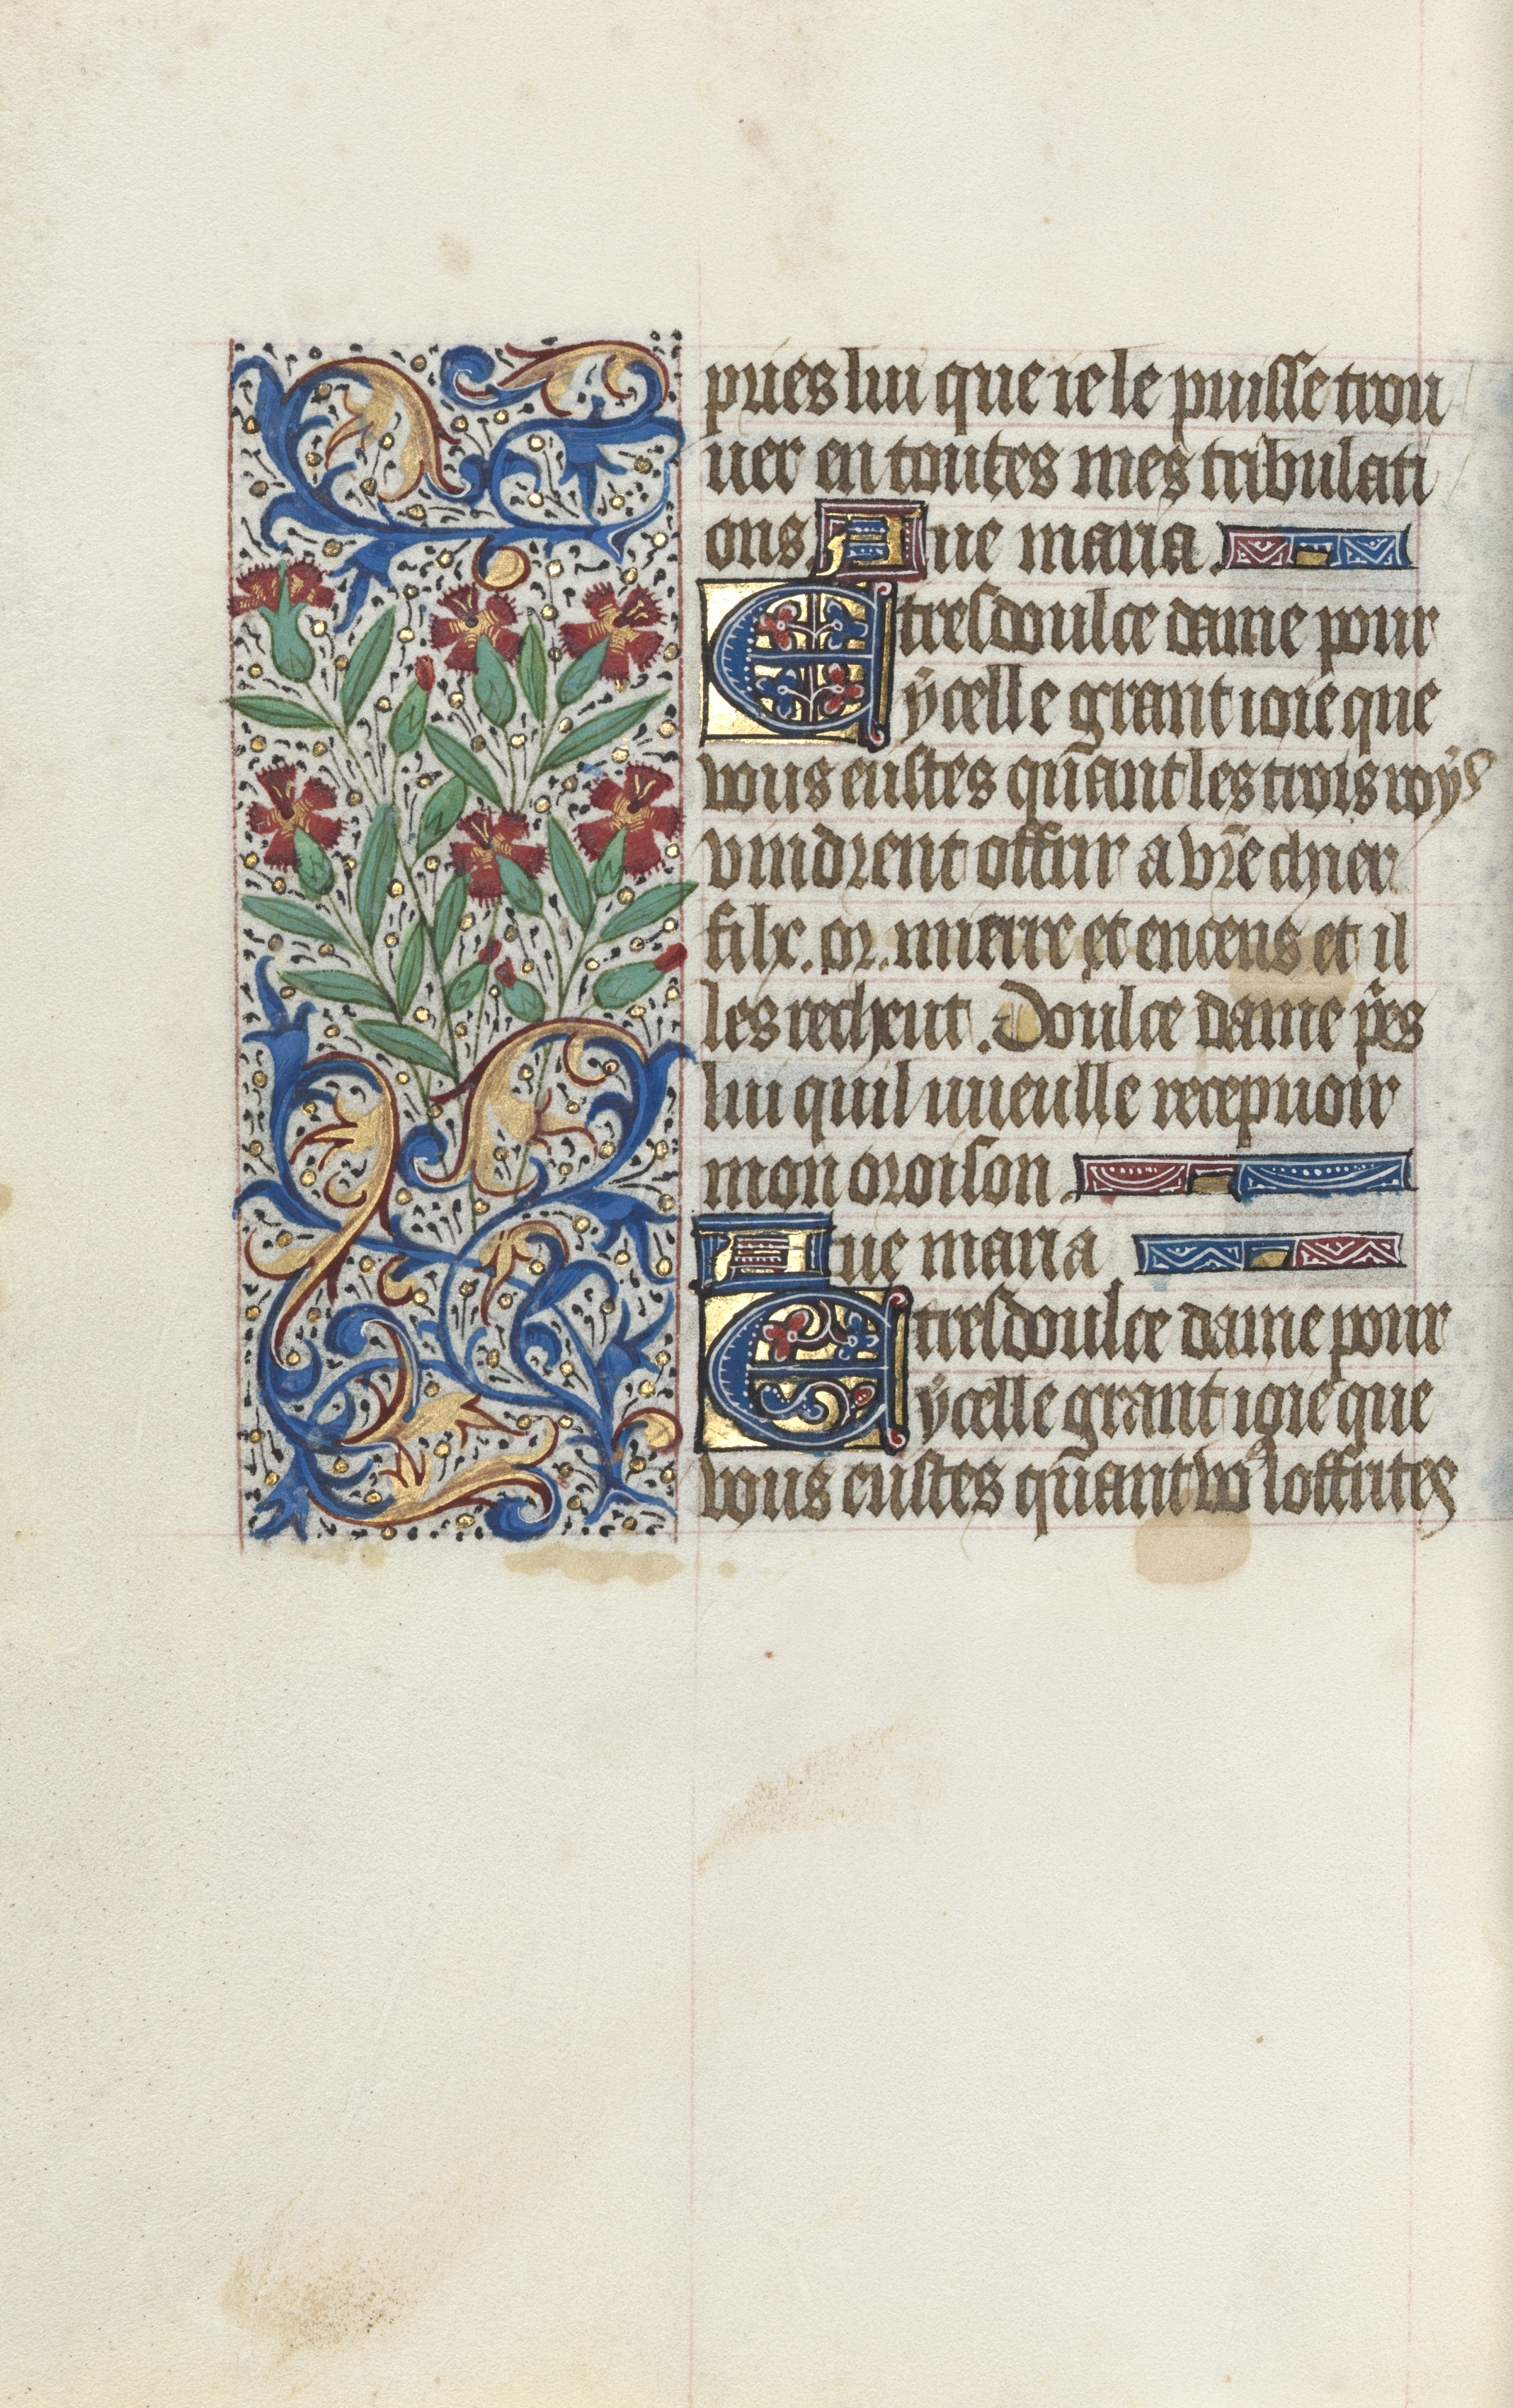 pries lui que ie le puisse trou
uer en toutes mes tribulati
ons. Aue maria.
E tresdoulce dame pour
ÿcelle grant ioie que
vous eustes qūant les trois roÿs
vindrent offrir a vr̄e chier
filx. or. mierre et encens et il
les recheut. Doulce dame p̄es
lui quil uueulle recepuoir
mon oroison.
Aue maria
E tresdoulce dame pour
ÿcelle grant ioie que
vous eustes qūant vo⁹ loffrites